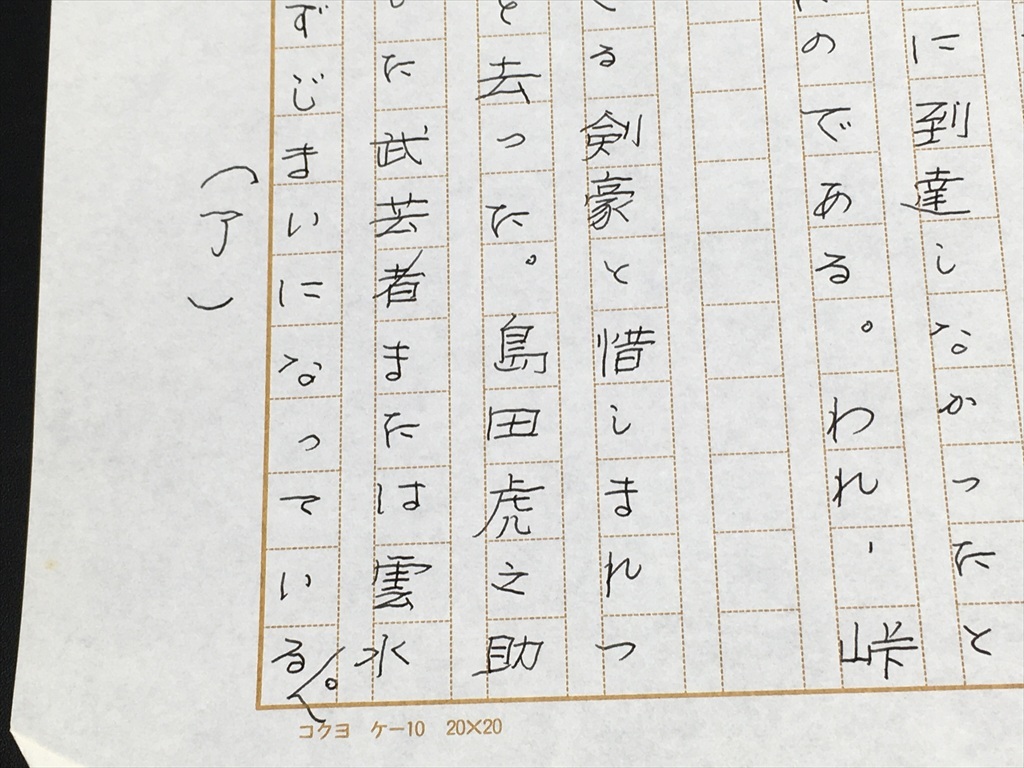 に到達しなかったと
のである。われ-峠
る剣豪と惜しまれつ
と去った。島田虎之助
た武芸者または雲水
ずじまいになっている。
(了)
コクヨ ケー10 20×20